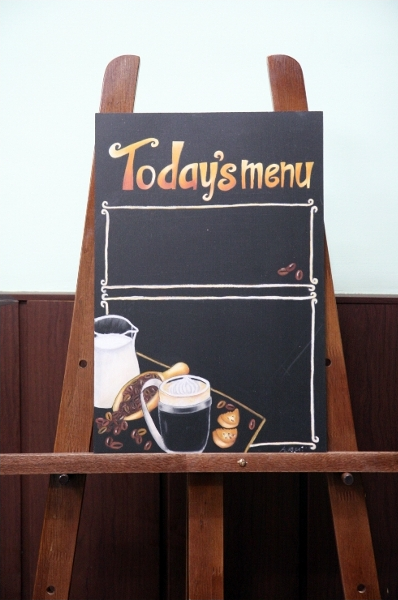 Today's menu